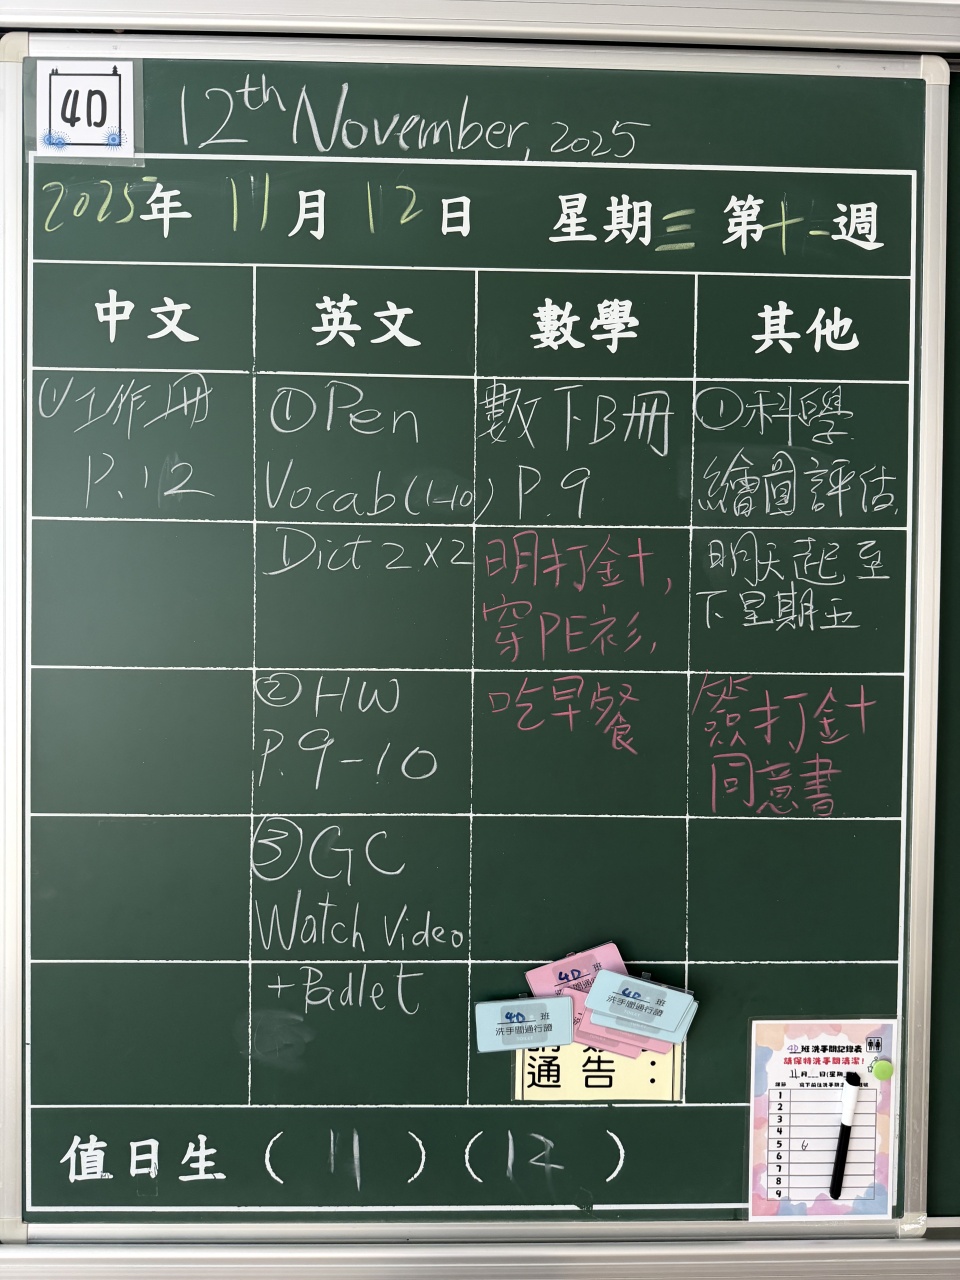 4D
12th November, 2025
2025年 11月 12日 星期三 第十二週
中文
英文
數學
其他
① 工作冊
P.12
① Pen
Vocab (1-10)
Dict 2 x2
② HW
P.9-10
③ GC
Watch Video
+ Padlet
數下B冊
P.9
明打針,
穿PE衫,
吃早餐
① 科學
繪圖評估
明天起至
下星期五
簽打針
同意書
4D 班
4D 班
洗手間通行證
4D 班
洗手間通行證
通告：
4D 班洗手間記錄表
請保持洗手間清潔！
11月 日(星期
1
2
3
4
5 6
6
7
8
9
值日生 ( 11 ) ( 12 )